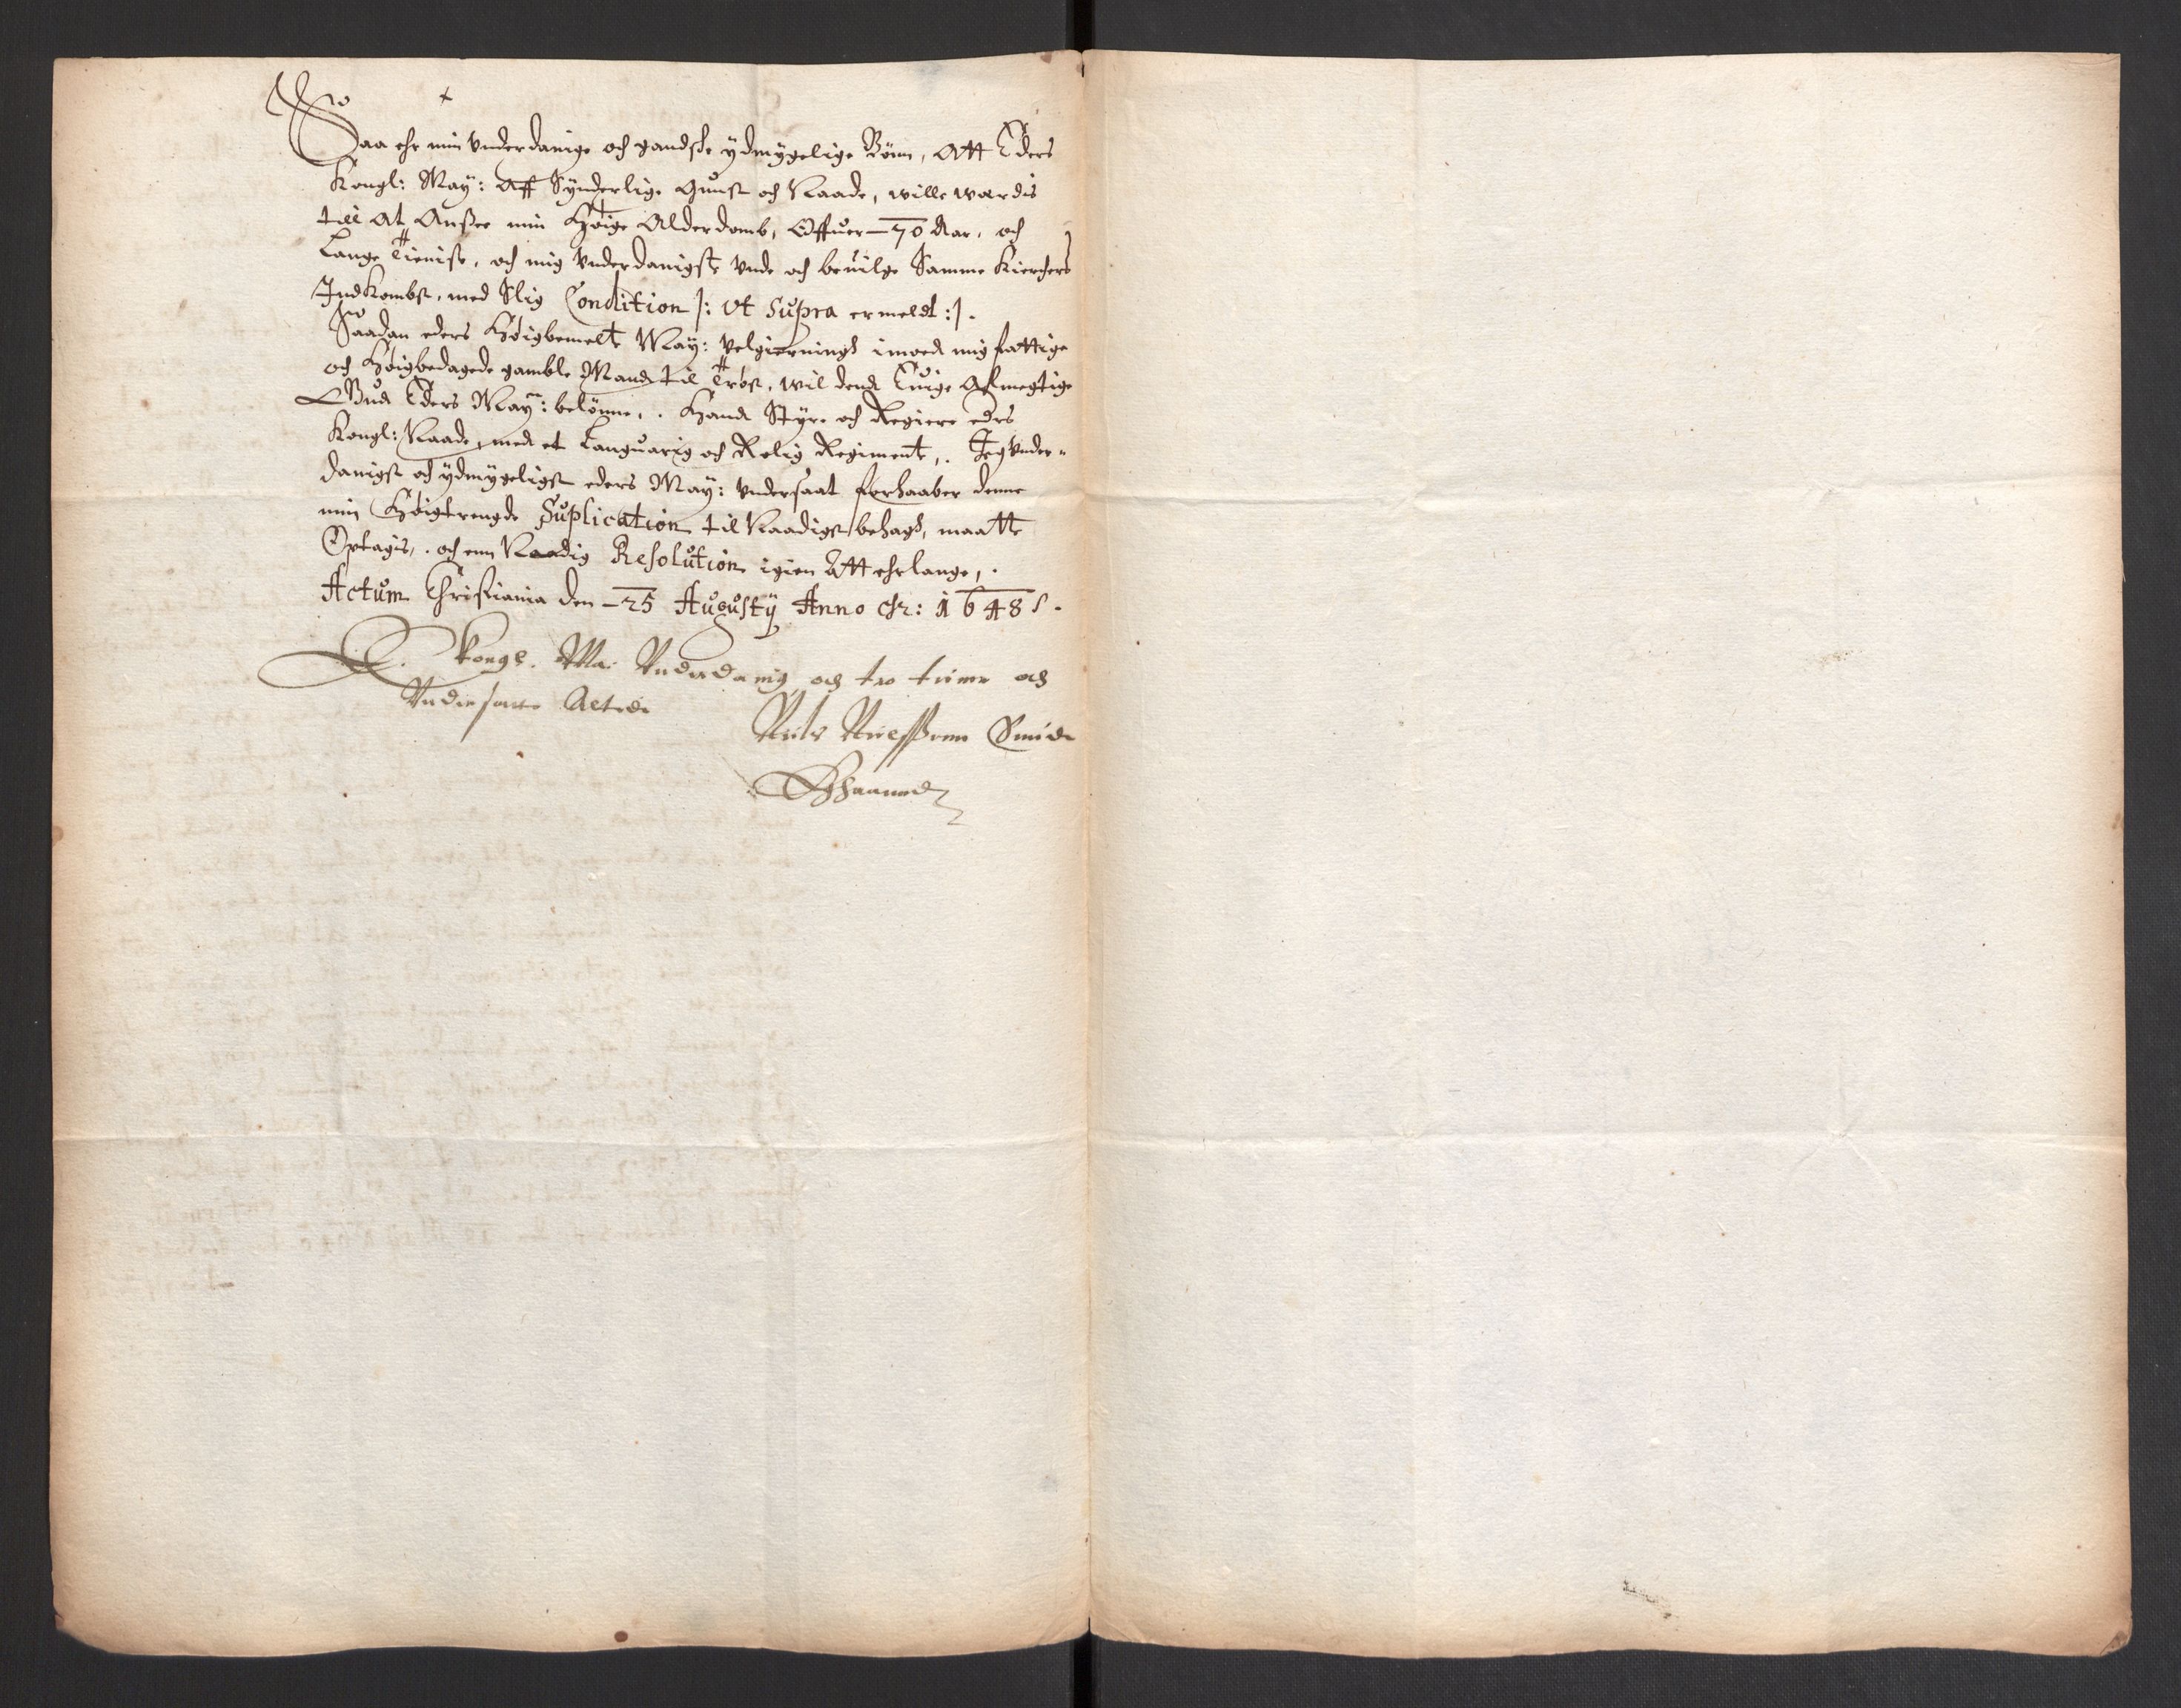 Saa ehr min underdanige och gandske ydmygelige Bönn, Att Eders
Kongl: May: Aff Synderlige Gunst och Naade, wille wærdis
till At Ansee min Høige Alderdomb, Offuer 70 Aar, och
Lange Tieniste, och mig Underdanigste Unde och beuilge Samme Kierchers
Indkombst, med Slig Condition |: Ut Supra ermeldt :|.
Saadan eders Høigbemelte May: Velgierningh imoed mig fattige
och Høigbedagede gamble Mand til Tröst, wil dend Euige Almegtige
Gud Eders May: belönne, Hand Styre och Regiere eders
Kongl: Naade, med et Languarig och Rolig Regimente, Jeg Under-
danigst och ydmygeligst eders May: Undersaat forhaaber denne
min Høigtrengde Suplication til Naadigst behagh, maatte
Optagis, och enn Naadig Resolution igien Att ehrlange,
Actum Christiania den 25 Augustij Anno Chr: 1648.
E. Kongl. Ma: Underdanig och tro tiener och
Undersatte Altidt
Niels Nielssenn Smidt